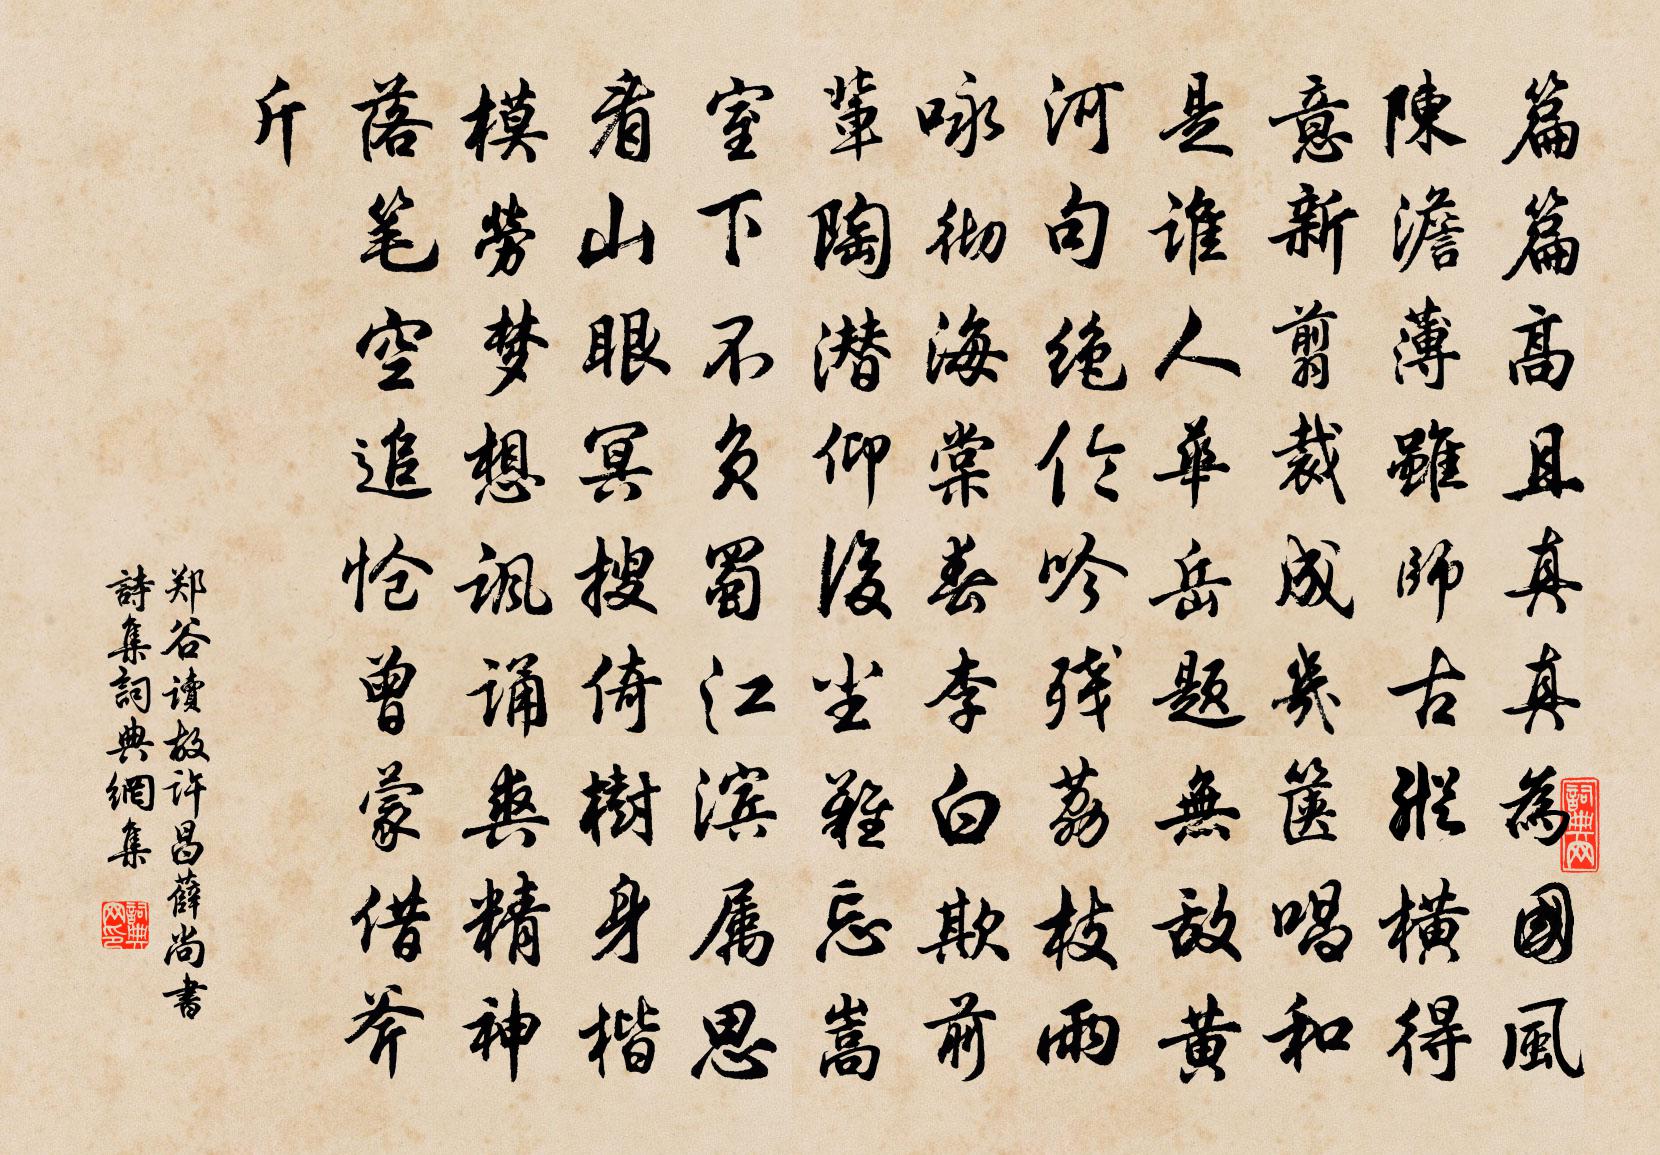 篇篇高且真真為國風
陳澹薄雖師古縱橫得
意新剪裁成幾篋唱和
是誰人華岳題無敵黃
河句绝伦吟残荔枝雨
咏彻海棠春李白欺前
輩陶潜仰後尘難忘嵩
室下不負蜀江滨属思
看山眼冥搜倚樹身楷
模勞梦想諷誦爽精神
落笔空追怆曾蒙借斧
斤
郑谷讀故許昌薛尚書
詩集詞典網集
詞典网
詞典网印